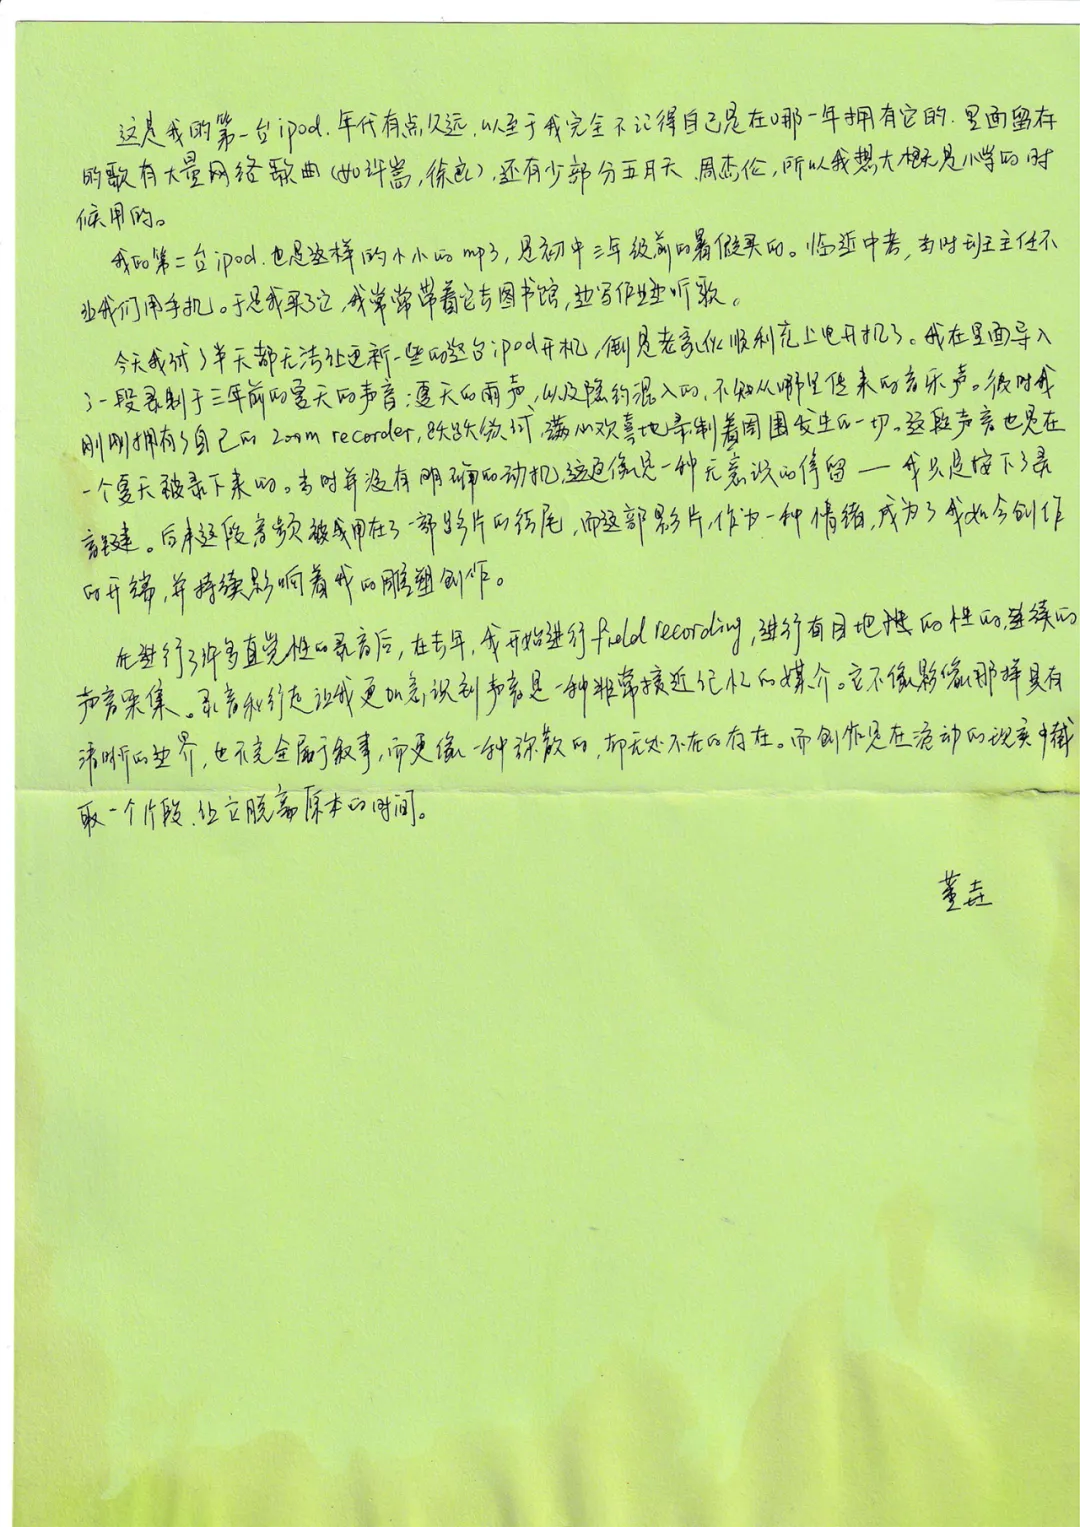 这是我的第一台ipod.年代有点久远,以至于我完全不记得自己是在哪一年拥有它的.里面留存
的歌有大量网络歌曲(如许嵩,徐良),还有少部分五月天.周杰伦,所以我想大概是小学的时
候用的。
我的第二台ipod.也是这样的小小的mp3,是初中三年级前的暑假买的。临近中考,当时班主任不
让我们用手机。于是我买了它,我常常带着它去图书馆,边写作业边听歌。
今天我试了半天都无法让更新一些的这台ipod开机,倒是老家伙顺利充上电开机了。我在里面导入
了一段录制于三年前的夏天的声音:夏天的雨声,以及隐约混入的,不知从哪里传来的音乐声。彼时我
刚刚拥有了自己的zoom recorder,跃跃欲试,满心欢喜地录制着周围发生的一切。这段声音也是在
一个夏天被录下来的。当时并没有明确的动机,这更像是一种无意识的停留——我只是按下了录
音键。后来这段音频被我用在了一部影片的结尾,而这部影片,作为一种情绪,成为了我如今创作
的开端,并持续影响着我的雕塑创作。
在进行了许多直觉性的录音后,在去年,我开始进行field recording,进行有目地性的的,连续的
声音采集。录音和行走让我更加意识到声音是一种非常接近记忆的媒介。它不像影像那样具有
清晰的边界,也不完全属于叙事,而更像一种弥散的,却无处不在的存在。而创作是在流动的现实中截
取一个片段,让它脱离原本的时间。
董垚